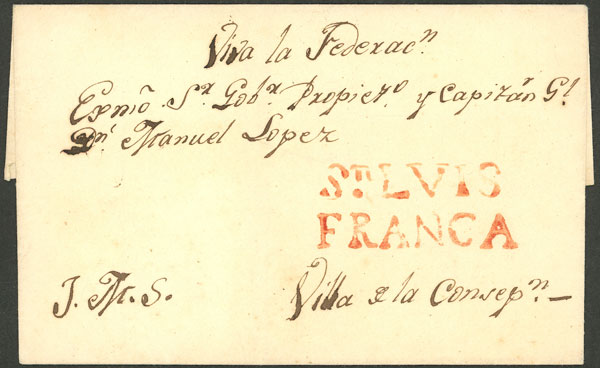 Viva la Federacⁿ.
Exmô Sʳ. Gobʳ. Propietº. y Capitáⁿ Gˡ.
Dⁿ. Manuel Lopez
Sⁿ LVIS
FRANCA
J. M. S.
Villa de la Consepⁿ.—